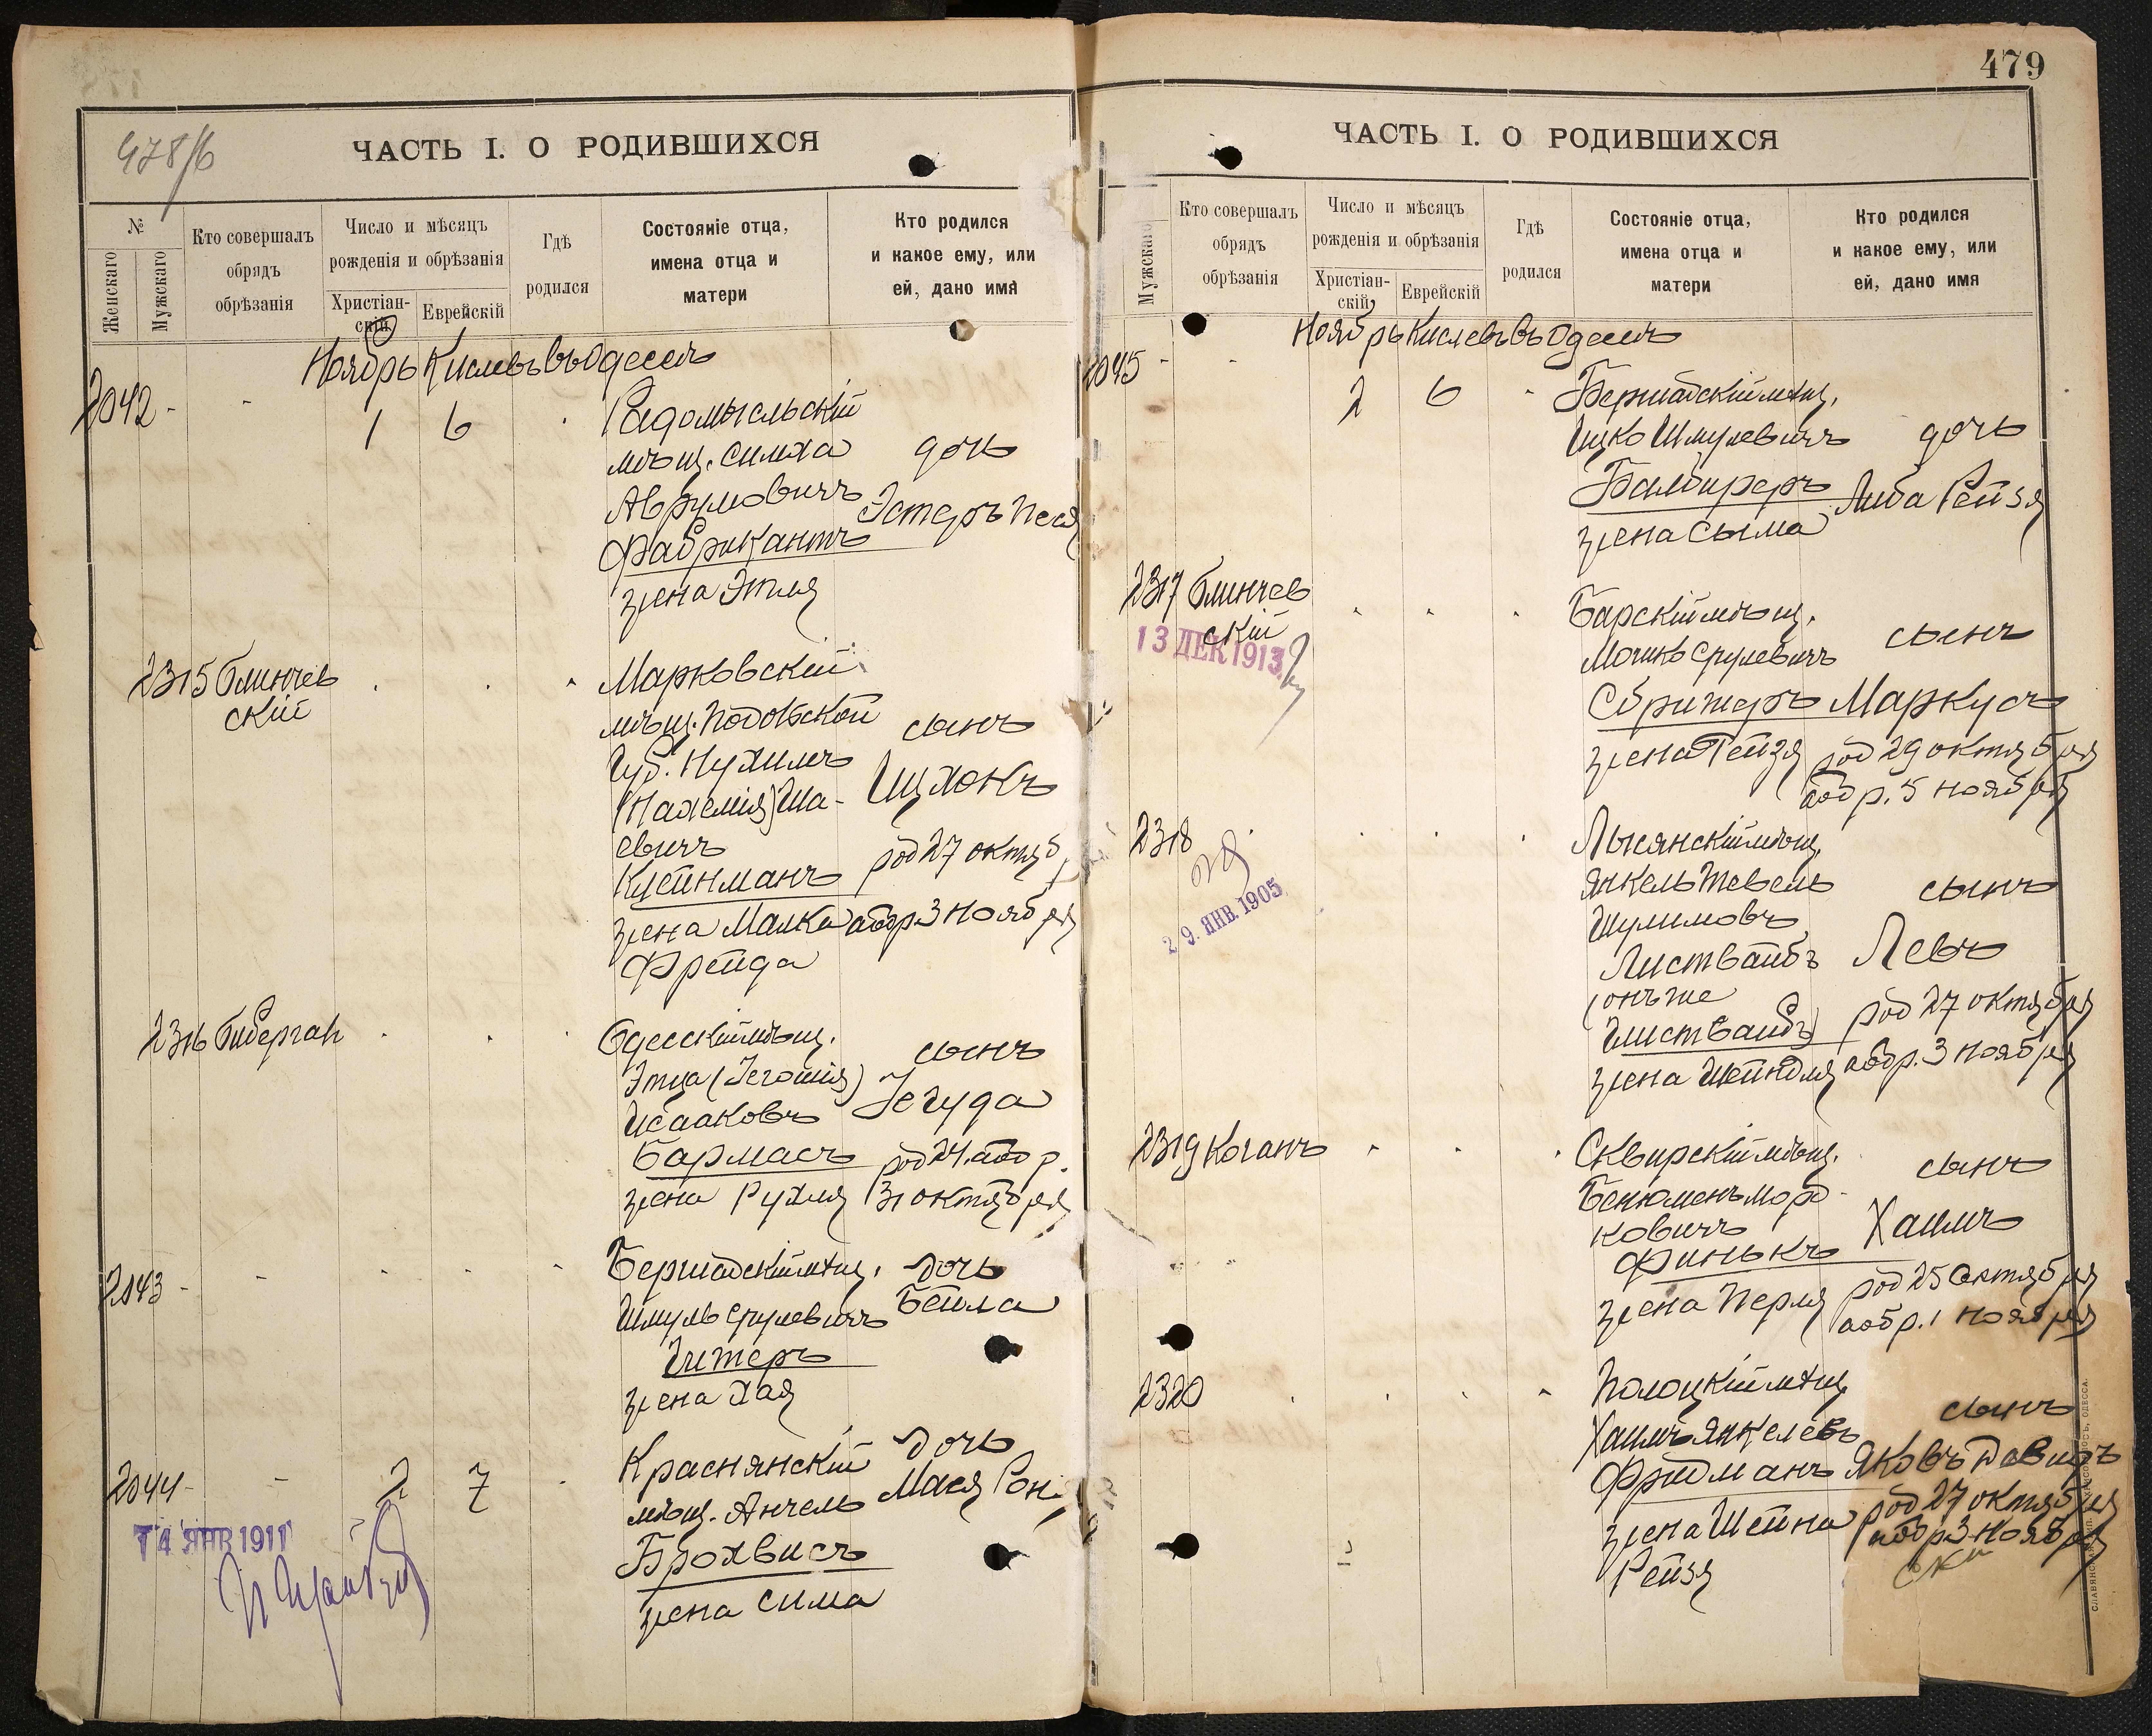 478/б
ЧАСТЬ I. О РОДИВШИХСЯ
№
Женскаго
Мужскаго
Кто совершалъ
обрядъ
обрѣзанія
Число и мѣсяцъ
рожденія и обрѣзанія
Христіан-
скій
Еврейскій
Гдѣ
родился
Состояніе отца,
имена отца и
матери
Кто родился
и какое ему, или
ей, дано имя
Ноябрь Кислевъ въ Одессѣ
2042 - - 1 6
Радомысльскій
мѣщ. Симха дочь
Аврумовичъ Эстеръ Песя
Фабрикантъ
жена Этля
2315 Блинчев
скій
Марковскій
мѣщ. Подольской сынъ
Губ. Нухимъ
(Нахемія) Ша- Ицхокъ
евичъ
Клейнманъ род 27 октяб
жена Малка а обр 3 Ноября
Фрейда
2316 Гиберган
Одесскій мѣщ. сынъ
Этца (Іегошія)
Исааковъ Іегуда
Бармасъ род 24. а обр.
жена Рухля 31 октября
2043 -
Бершадскій мѣщ. дочь
Шмуль Срулевичъ Бейла
Гитеръ
жена Хая
2044 - - 2 7
Краснянскій дочь
мѣщ. Анчель Мася
Брохвисъ
жена Сима
14 ЯНВ 1911
479
ЧАСТЬ I. О РОДИВШИХСЯ
Мужскаго
Кто совершалъ
обрядъ
обрѣзанія
Число и мѣсяцъ
рожденія и обрѣзанія
Христіан-
скій
Еврейскій
Гдѣ
родился
Состояніе отца,
имена отца и
матери
Кто родился
и какое ему, или
ей, дано имя
Ноябрь Кислевъ въ Одессѣ
2045 - - 2 6
Бершадскій мѣщ.
Ицко Шмулевичъ дочь
Балбиреръ
Либа Рейзя
жена Сыма
2317 Блинчев
скій
13 ДЕК 1913
Барскій мѣщ.
Мошко Срулевичъ сынъ
Сбритеръ Маркусъ
жена Рейзя род 29 октября
а обр. 5 ноября
2318
29. ЯНВ. 1905
Лысянскій мѣщ.
Янкель Тевель сынъ
Шулимовъ
Листвайбъ Левъ
(онъ же
Глиствайбъ) род 27 октября
жена Шейндля а обр. 3 ноября
2319 Коганъ
Сквирскій мѣщ. сынъ
Бенюменъ Морд-
ковичъ Хаимъ
Финькъ
род 25 октября
жена Перля а обр. 1 ноября
2320
Полоцкій мѣщ. сынъ
Хаимъ Янкелевъ
Фридманъ Яковъ Давидъ
род 27 октября
жена Шейна а обр 3 ноября
Рейзя